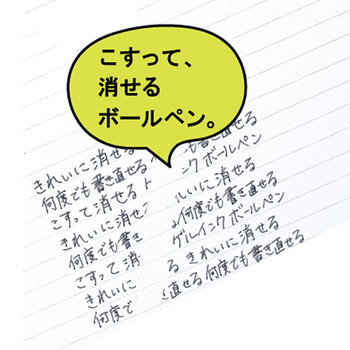 こすって、
消せる
ボールペン。
きれいに消せる
何度でも書き直せる
こすって消せる
きれいに消せ
何度でも書き
こすって消
きれいに
何度で
も書き直せる
ンクボールペン
いに消せる
何度でも書き直せる
ゲルインクボールペン
る きれいに消せる
直せる 何度でも書き直せる